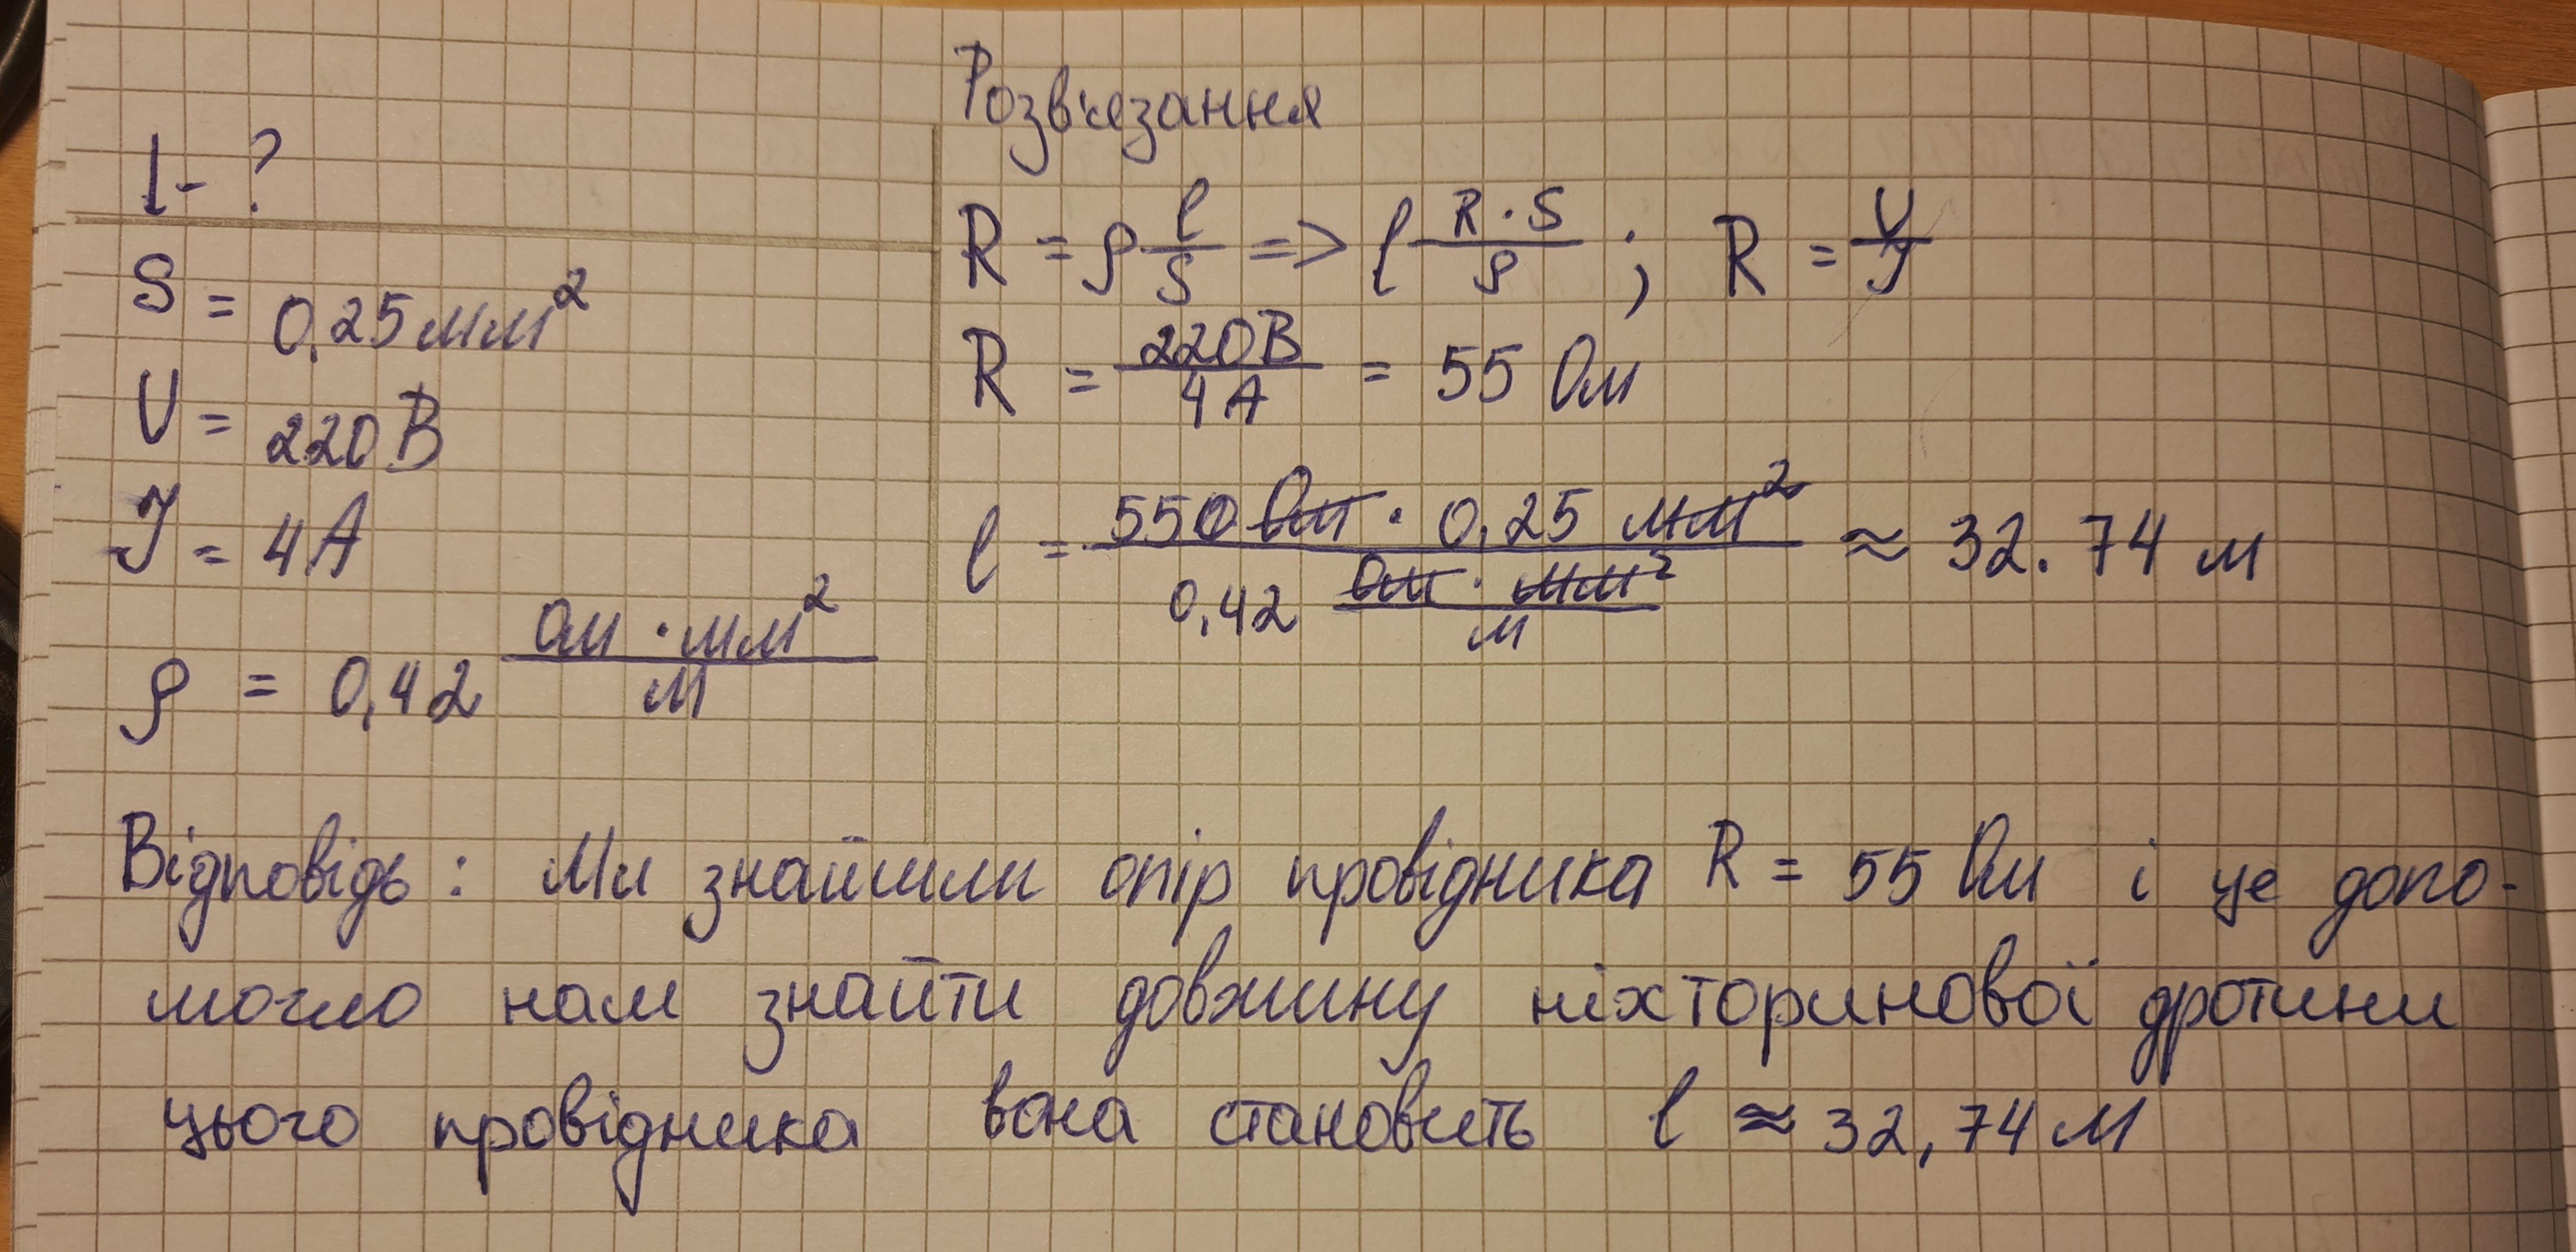 Розв'язання
l - ?
S = 0,25 мм²
U = 220 В
I = 4 А
ρ = 0,42 Ом · мм² / м
R = ρ l / S => l R · S / ρ ; R = U / I
R = 220 В / 4 А = 55 Ом
l = 550 Ом · 0,25 мм² / 0,42 Ом · мм² / м ≈ 32.74 м
Відповідь: Ми знайшли опір провідника R = 55 Ом і це допо-
могло нам знайти довжину ніхторинової дротини
цього провідника вона становить l ≈ 32,74 м